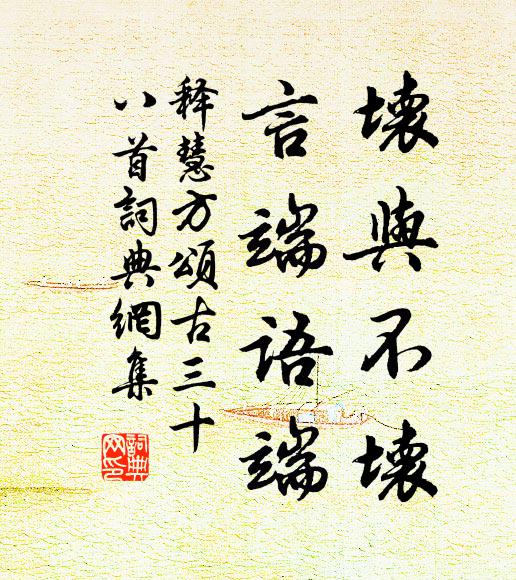 壞與不壞
言端語端
释慧方頌古三十
八首詞典網集
詞典
网印